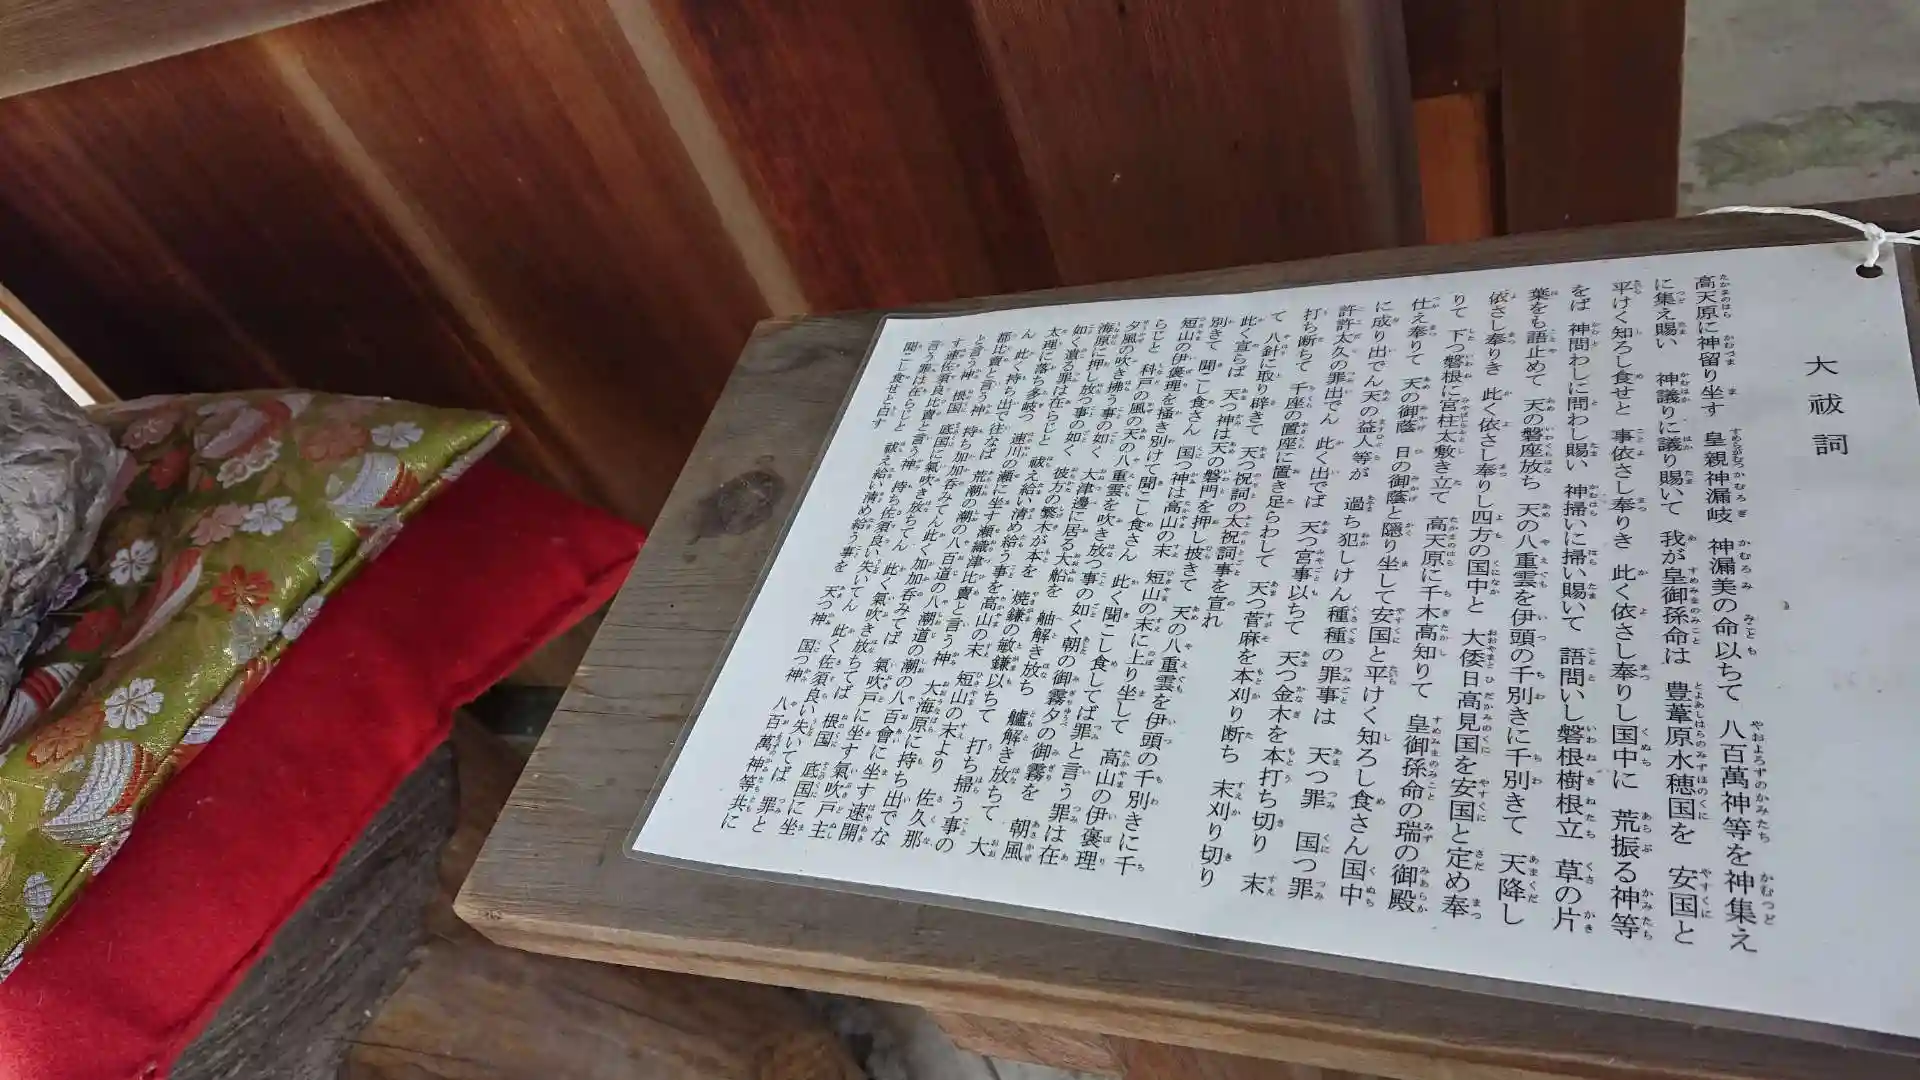 大祓詞
高天原に神留り坐す 皇親神漏岐 神漏美の命以ちて 八百萬神等を神集え
に集え賜い 神議りに議り賜いて 我が皇御孫命は 豊葦原水穂国を 安国と
平けく知ろし食せと 事依さし奉りき 此く依さし奉りし国中に 荒振る神等
をば 神問わしに問わし賜い 神掃いに掃い賜いて 語問いし磐根樹根立 草の片
葉をも語止めて 天の磐座放ち 天の八重雲を伊頭の千別きに千別きて 天降し
依さし奉りき 此く依さし奉りし四方の国中と 大倭日高見国を安国と定め奉
りて 下つ磐根に宮柱太敷き立て 高天原に千木高知りて 皇御孫命の瑞の御殿
仕え奉りて 天の御蔭 日の御蔭と隠り坐して安国と平けく知ろし食さん国中
に成り出でん天の益人等が 過ち犯しけん種種の罪事は 天つ罪 国つ罪
許許太久の罪出でん 此く出でば 天つ宮事以ちて 天つ金木を本打ち切り 末
打ち断ちて 千座の置座に置き足らわして 天つ菅麻を本刈り断ち 末刈り切り
て 八針に取り辟きて 天つ祝詞の太祝詞事を宣れ
此く宣らば 天つ神は天の磐門を押し披きて 天の八重雲を伊頭の千別きに千
別きて 聞こし食さん 国つ神は高山の末 短山の末に上り坐して 高山の伊褒理
短山の伊褒理を掻き別けて聞こし食さん 此く聞こし食してば罪と言う罪は在
らじと 科戸の風の天の八重雲を吹き放つ事の如く 朝の御霧夕の御霧を 朝風
夕風の吹き拂う事の如く 大津邊に居る大船を 舳解き放ち 艫解き放ちて 大
海原に押し放つ事の如く 彼方の繁木が本を 焼鎌の敏鎌以ちて 打ち掃う事の
如く 遺る罪は在らじと 祓え給い清め給う事を 高山の末 短山の末より 佐久那
太理に落ち多岐つ 速川の瀬に坐す瀬織津比賣と言う神 大海原に持ち出でな
ん 此く持ち出で往なば 荒潮の潮の八百道の八潮道の潮の八百會に坐す速開
都比賣と言う神 持ち加加呑みてん 此く加加呑みてば 氣吹戸に坐す氣吹戸主
と言う神 根国 底国に氣吹き放ちてん 此く氣吹き放ちてば 根国 底国に坐
す速佐須良比賣と言う神 持ち佐須良い失いてん 此く佐須良い失いてば 罪と
言う罪は在らじと 祓え給い清め給う事を 天つ神 国つ神 八百萬神等共に
聞こし食せと白す